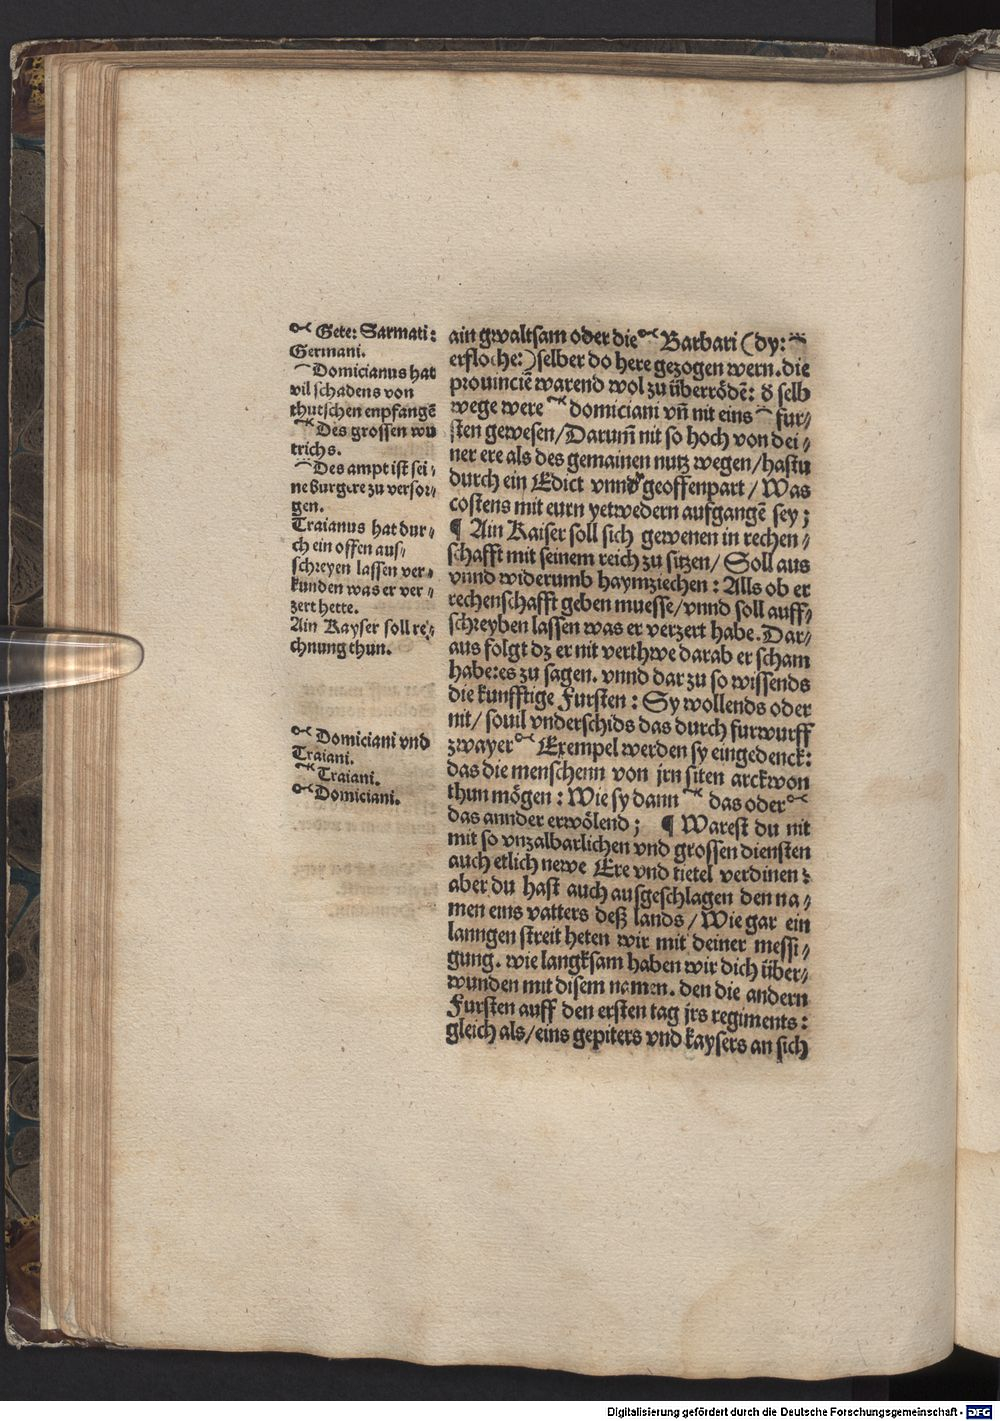 Gete: Sarmati:
Germani.
Domicianus hat
vil schadens von
thutschen enpfangē
Des grossen wu
trichs.
Des ampt ist sei⸗
ne burgere zu versor⸗
gen.
Traianus hat dur⸗
ch ein offen aus⸗
schreyen lassen ver⸗
kunden was er ver⸗
zert hette.
Ain Kayser soll re⸗
chnung thun.
Domiciani vnd
Traiani.
Traiani.
Domiciani.
ain gwaltsam oder die Barbari (dy:
erfloche:) selber do here gezogen wern. die
prouinciē warend wol zu überrödē: d selb
wege were domiciani vn̄ nit eins fur⸗
sten gewesen/ Darum̄ nit so hoch von dei⸗
ner ere als des gemainen nutz wegen/ hastu
durch ein Edict vnnd geoffenpart/ Was
costens mit eurn yetwedern aufgangē sey;
¶ Ain Kaiser soll sich gewenen in rechen⸗
schafft mit seinem reich zu sitzen/ Soll aus
vnnd widerumb haymziechen: Alls ob er
rechenschafft geben muesse/ vnnd soll auff⸗
schreyben lassen was er verzert habe. Dar⸗
aus folgt dz er nit verthwe darab er scham
habe: es zu sagen. vnnd dar zu so wissends
die kunfftige Fursten: Sy wollends oder
nit/ souil vnderschids das durch furwurff
zwayer Exempel werden sy eingedenck:
das die menschenn von jrn siten arckwon
thun mögen: Wie sy dann das oder
das annder erwölend; ¶ Warest du nit
mit so vnzalbarlichen vnd grossen diensten
auch etlich newe Ere vnd tietel verdinen:
aber du hast auch ausgeschlagen den na⸗
men eins vatters deß lands/ Wie gar ein
lanngen streit heten wir mit deiner messi⸗
gung. wie langksam haben wir dich über⸗
wunden mit disem namen. den die andern
Fursten auff den ersten tag jrs regiments:
gleich als/ eins gepiters vnd kaysers an sich
Digitalisierung gefördert durch die Deutsche Forschungsgemeinschaft - DFG